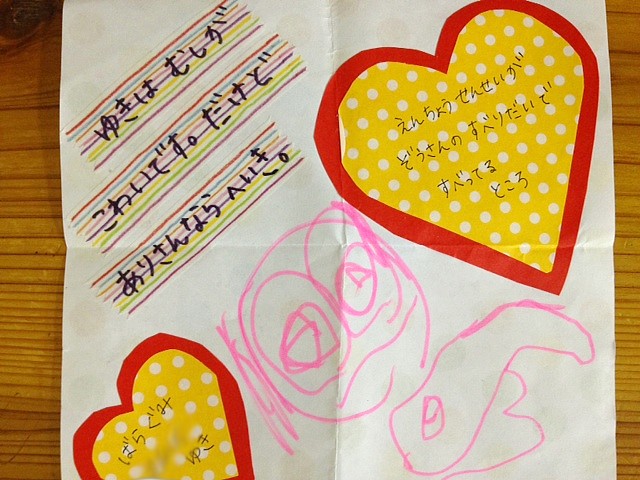 ゆきは むしが
こわいです。だけど
ありさんなら へいき。
えんちょう せんせいが
ぞうさんの すべりだいで
すべってる
ところ
ばらぐみ
ゆき